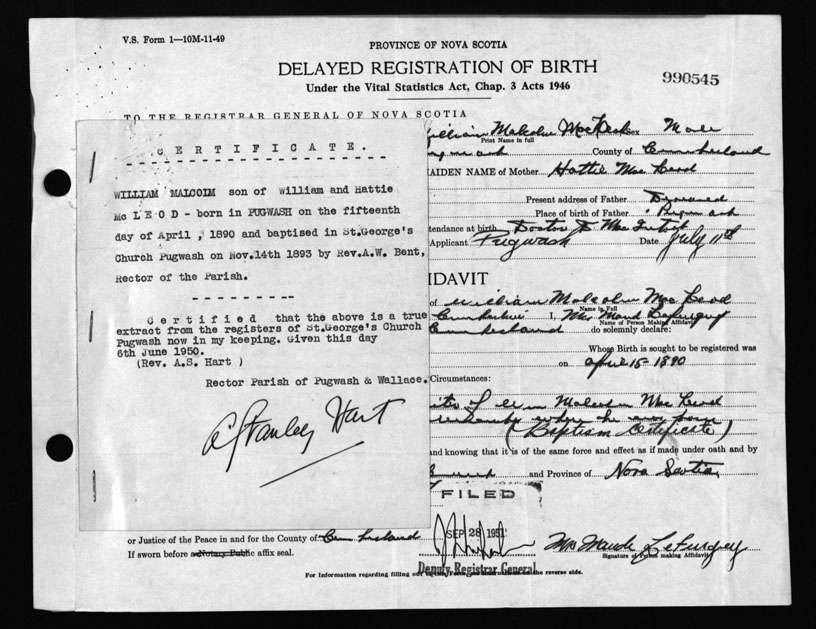 V.S. Form 1—10M-11-49
PROVINCE OF NOVA SCOTIA
DELAYED REGISTRATION OF BIRTH
Under the Vital Statistics Act, Chap. 3 Acts 1946
990545
TO THE REGISTRAR GENERAL OF NOVA SCOTIA
William Malcolm MacLeod Sex Male
Print Name in full
County of Cumberland
MAIDEN NAME of Mother Hattie MacLeod
Present address of Father Deceased
Place of birth of Father Pugwash
attendance at birth Doctor
Applicant Pugwash Date July 11th
CERTIFICATE.
WILLIAM MALCOLM son of William and Hattie
Mc LEOD - born in PUGWASH on the fifteenth
day of April , 1890 and baptised in St.George's
Church Pugwash on Nov.14th 1893 by Rev.A.W. Bent,
Rector of the Parish.
Certified that the above is a true
extract from the registers of St.George's Church
Pugwash now in my keeping. Given this day
6th June 1950.
(Rev. A.S. Hart )
Rector Parish of Pugwash & Wallace.
A Stanley Hart
IDAVIT
of William Malcolm MacLeod
Name in Full
I, Mrs Maud Lefurgey
Name of Person Making Affidavit
Cumberland do solemnly declare:
Whose Birth is sought to be registered was
on April 15 - 1890
Circumstances:
Malcolm MacLeod
where he was born
(Baptism Certificate)
and knowing that it is of the same force and effect as if made under oath and by
and Province of Nova Scotia
FILED
SEP 28 1951
Deputy Registrar General
or Justice of the Peace in and for the County of Cumberland
If sworn before a Notary Public affix seal.
Mrs Maude Lefurgey
Signature of Person making Affidavit
For Information regarding filling out the reverse side.